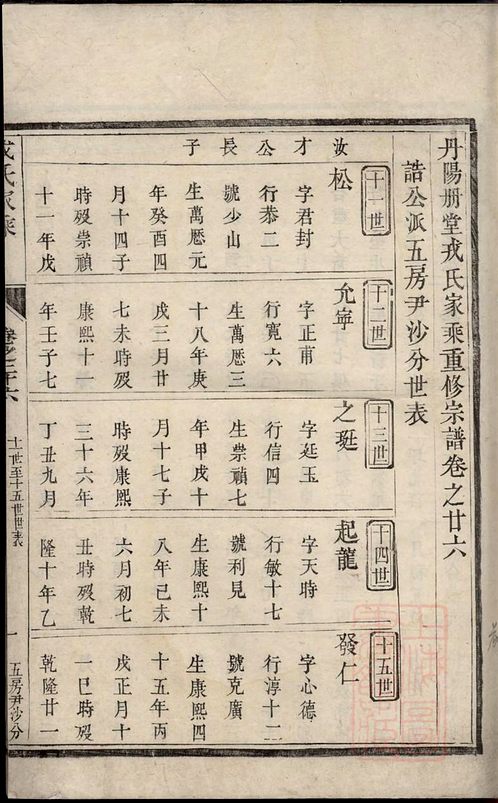 丹陽册堂戎氏家乘重修宗譜卷之廿六
誥公派五房尹沙分世表
十一世
汝才公長子
松
字君封
行恭二
號少山
生萬厯元
年癸酉四
月十四子
時歿崇禎
十一年戊
十二世
允寧
字正甫
行寬六
生萬厯三
十八年庚
戌三月廿
七未時歿
康熙十一
年壬子七
十三世
之珽
字延玉
行信四
生崇禎七
年甲戌十
月十七子
時歿康熙
三十六年
丁丑九月
十四世
起龍
字天時
行敏十七
號利見
生康熙十
八年己未
六月初七
丑時歿乾
隆十年乙
十五世
發仁
字心德
行淳十二
號克廣
生康熙四
十五年丙
戌正月十
一巳時歿
乾隆廿一
戎氏家乘
卷之二十六
十一世至十五世世表
一
五房尹沙分